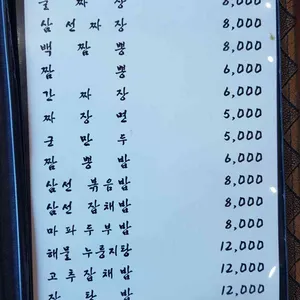 굴 짜 장 8,000
삼 선 짜 장 8,000
백 짬 뽕 8,000
짬 뽕 6,000
간 짜 장 6,000
짜 장 면 5,000
군 만 두 5,000
짬 뽕 밥 6,000
삼선 볶음밥 8,000
삼선 잡채밥 8,000
마파두부밥 8,000
해물 누룽지탕 12,000
고추잡채밥 12,000
12,000